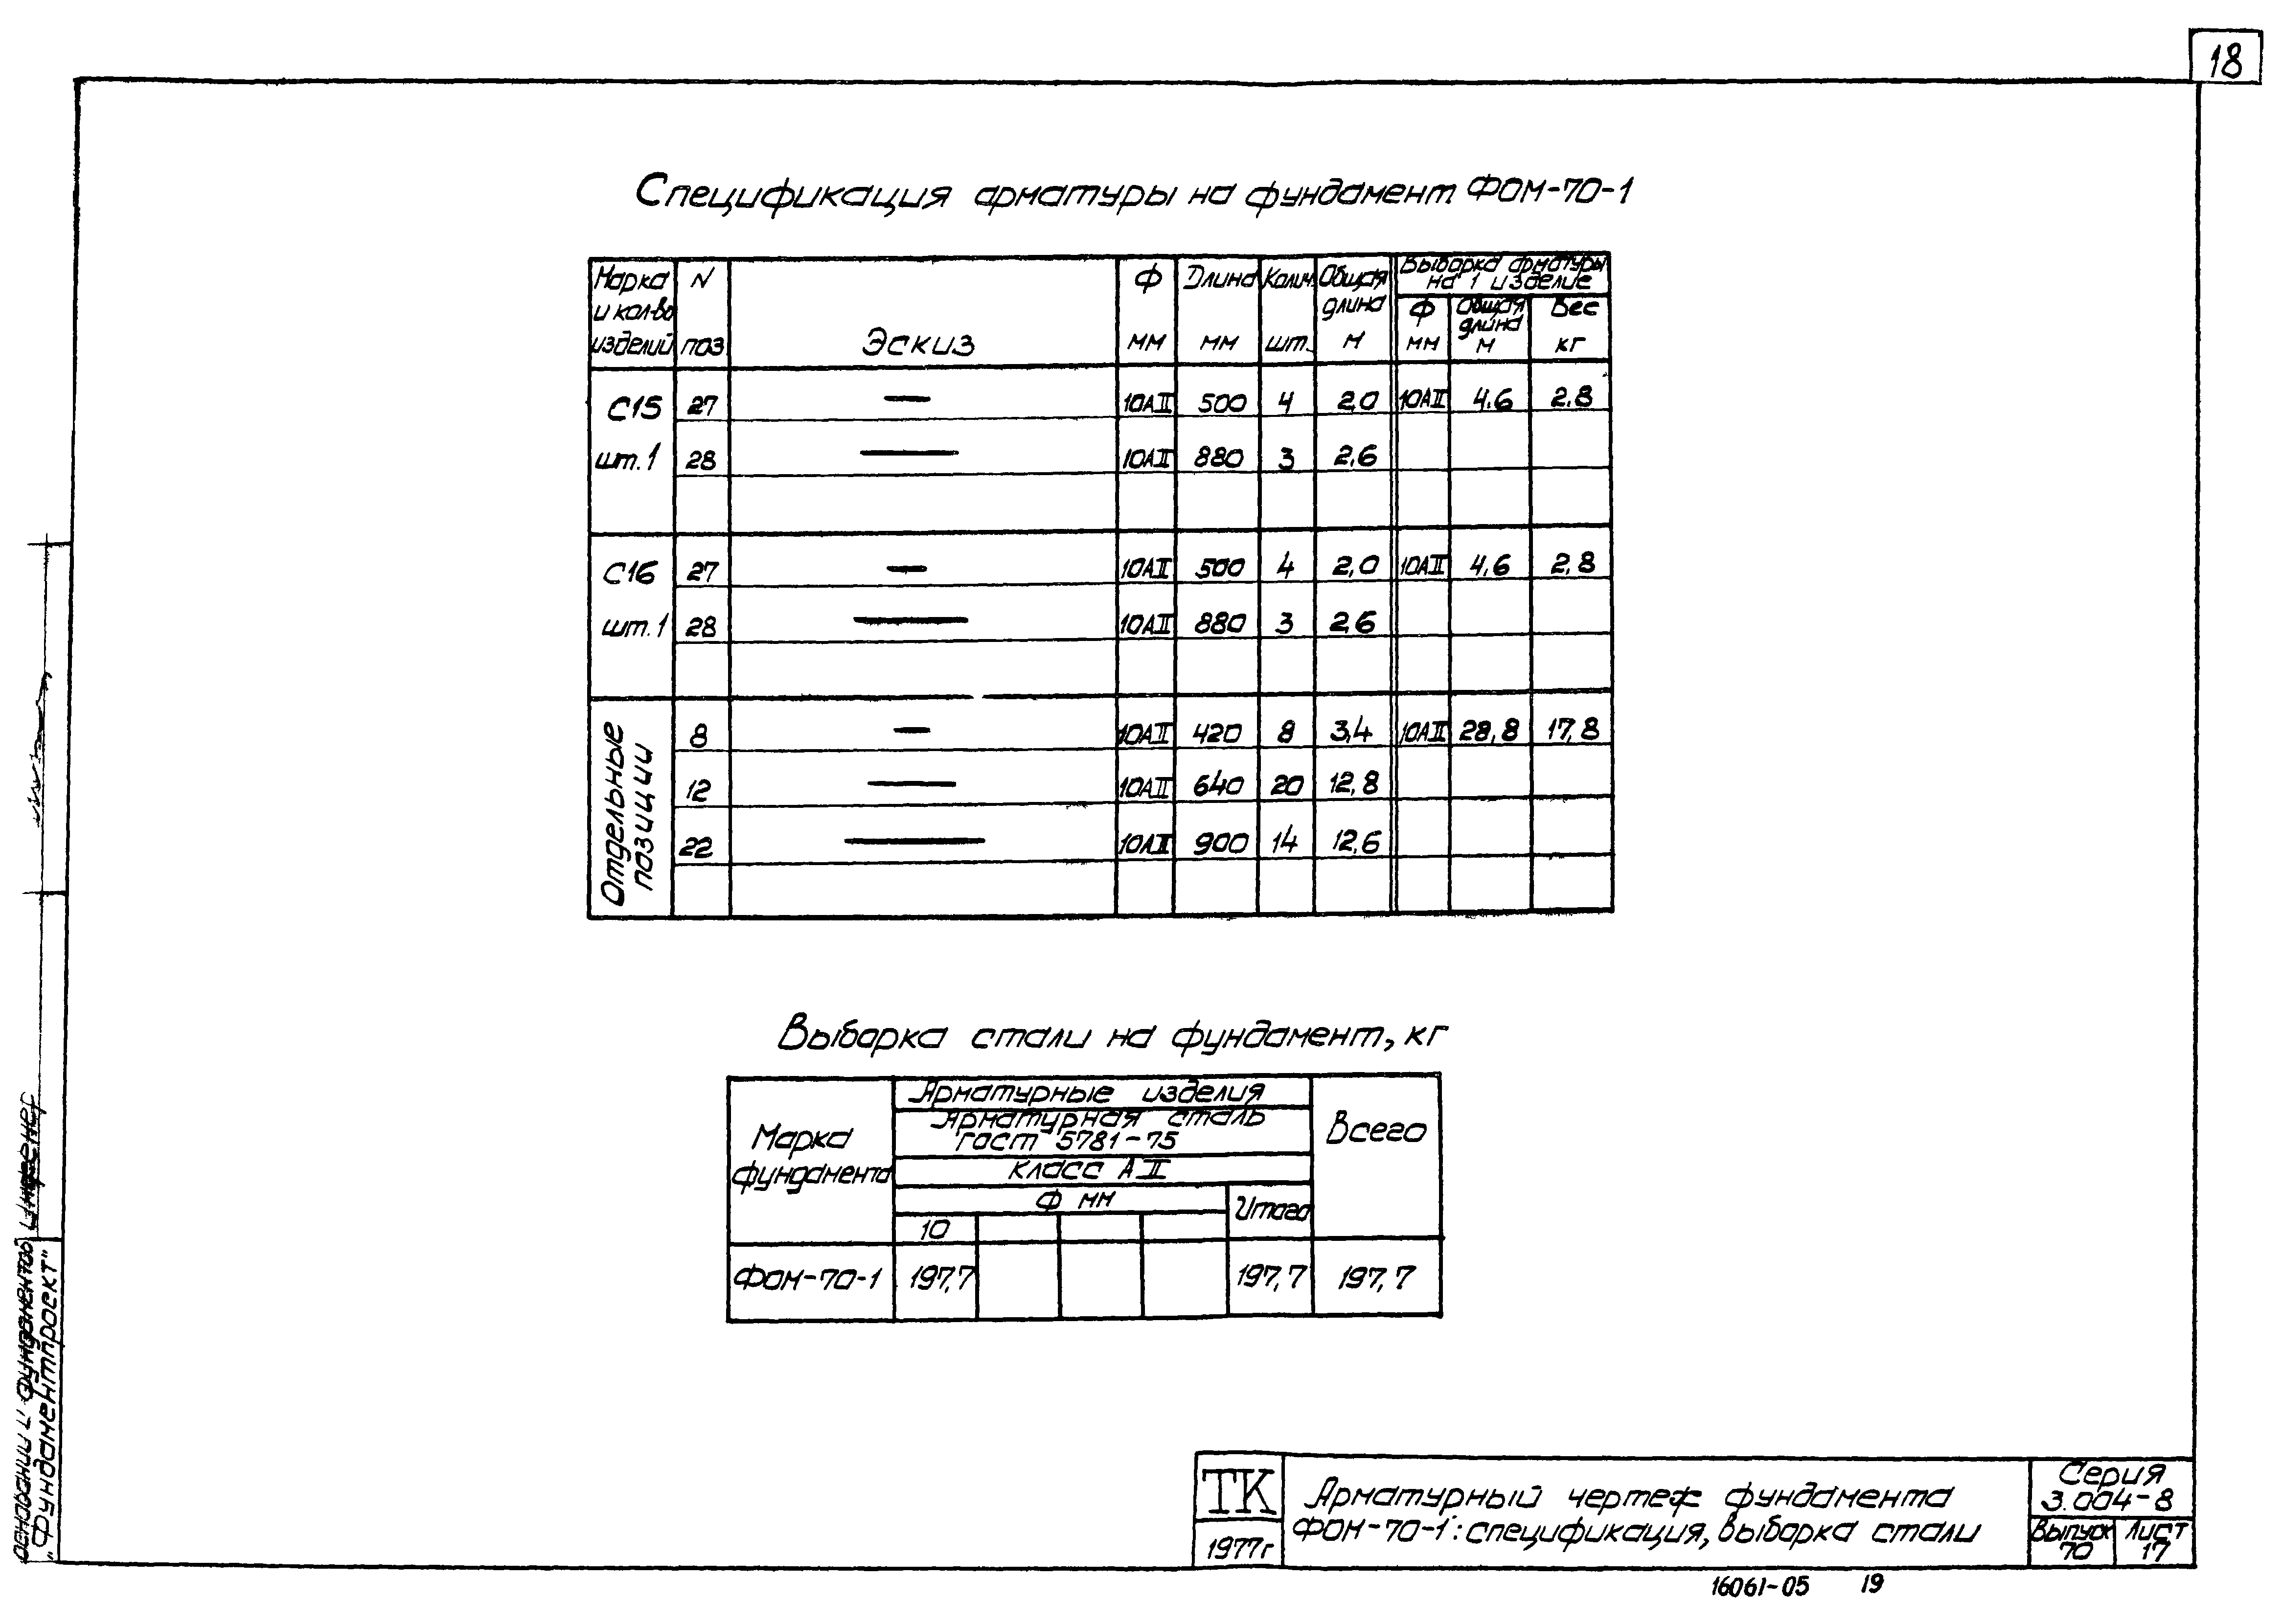 18
Спецификация арматуры на фундамент ФОМ-70-1
Марка и кол-во изделий | N поз | Эскиз | Ф мм | Длина мм | Колич. шт. | Общая длина м | Выборка арматуры на 1 изделие
Ф мм | Общая длина м | Вес кг
С15 | 27 | 10АII | 500 | 4 | 2,0 | 10АII | 4,6 | 2,8
шт.1 | 28 | 10АII | 880 | 3 | 2,6
С16 | 27 | 10АII | 500 | 4 | 2,0 | 10АII | 4,6 | 2,8
шт.1 | 28 | 10АII | 880 | 3 | 2,6
Отдельные позиции
8 | 10АII | 420 | 8 | 3,4 | 10АII | 28,8 | 17,8
12 | 10АII | 640 | 20 | 12,8
22 | 10АII | 900 | 14 | 12,6
Выборка стали на фундамент, кг
Марка фундамента | Арматурные изделия | Всего
Арматурная сталь
ГОСТ 5781-75
Класс АII
Ф мм | Итого
10
ФОМ-70-1 | 197,7 | 197,7 | 197,7
ТК
1977г
Арматурный чертеж фундамента
ФОМ-70-1: спецификация, выборка стали
Серия
3.004-8
Выпуск 70
Лист 17
16061-05 19
оснований и фундаментов
"Фундаментпроект"
Инженер